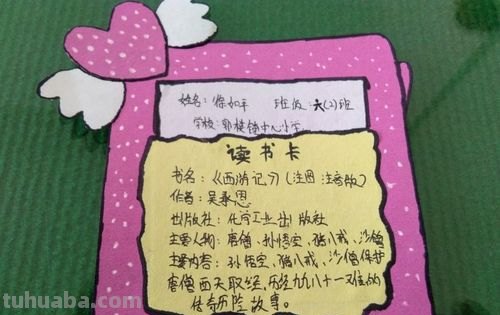 姓名：徐如平 班级：六(2)班
学校：郭楼镇中心小学
读书卡
书名：《西游记》(注图 注音版)
作者：吴承恩
出版社：化学工业出版社
主要人物：唐僧、孙悟空、猪八戒、沙僧
主要内容：孙悟空、猪八戒、沙僧保护
唐僧西天取经，历经九九八十一难的
传奇历险故事。
tuhuaba.com